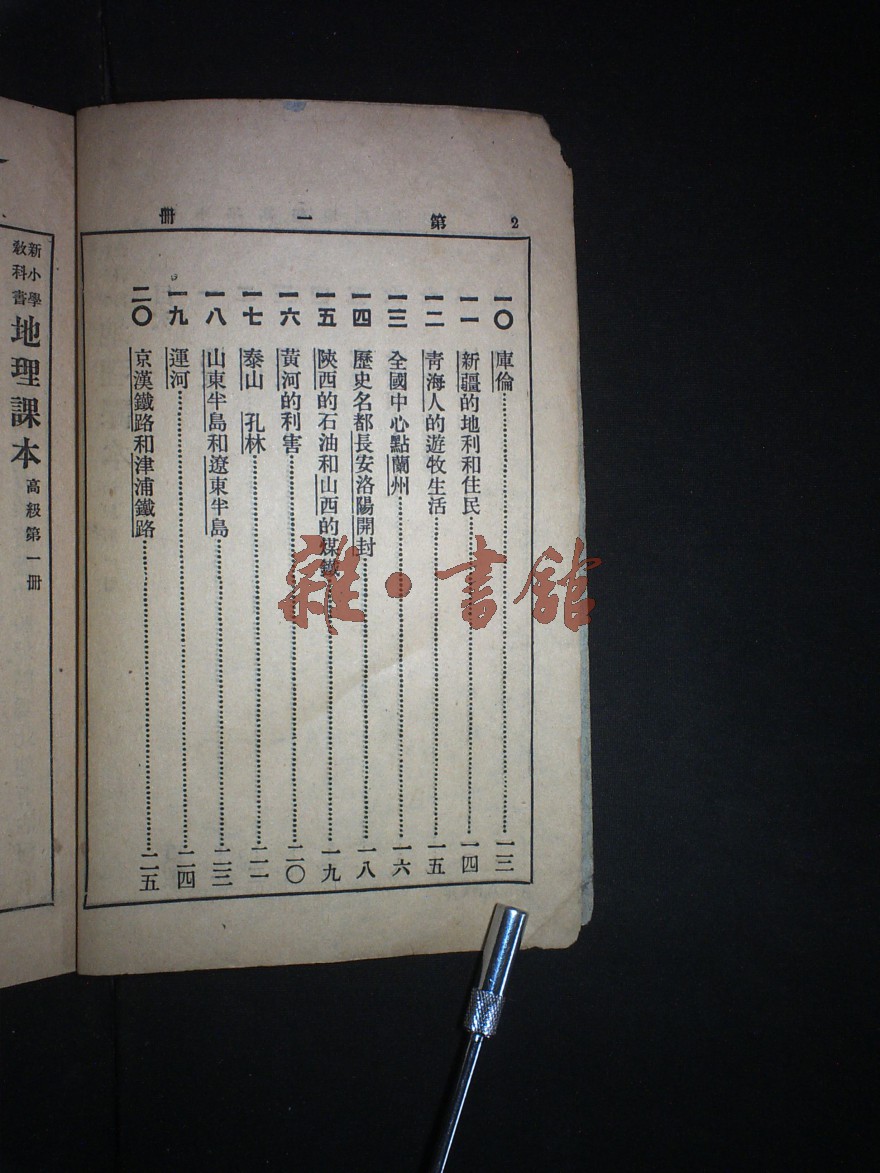 2 第一冊
一〇 庫倫 一三
一一 新疆的地利和住民 一四
一二 青海人的遊牧生活 一五
一三 全國中心點蘭州 一六
一四 歷史名都長安洛陽開封 一八
一五 陝西的石油和山西的煤鐵 一九
一六 黃河的利害 二〇
一七 泰山 孔林 二一
一八 山東半島和遼東半島 二三
一九 運河 二四
二〇 京漢鐵路和津浦鐵路 二五
新小學教科書 地理課本 高級第一冊
雜·書館